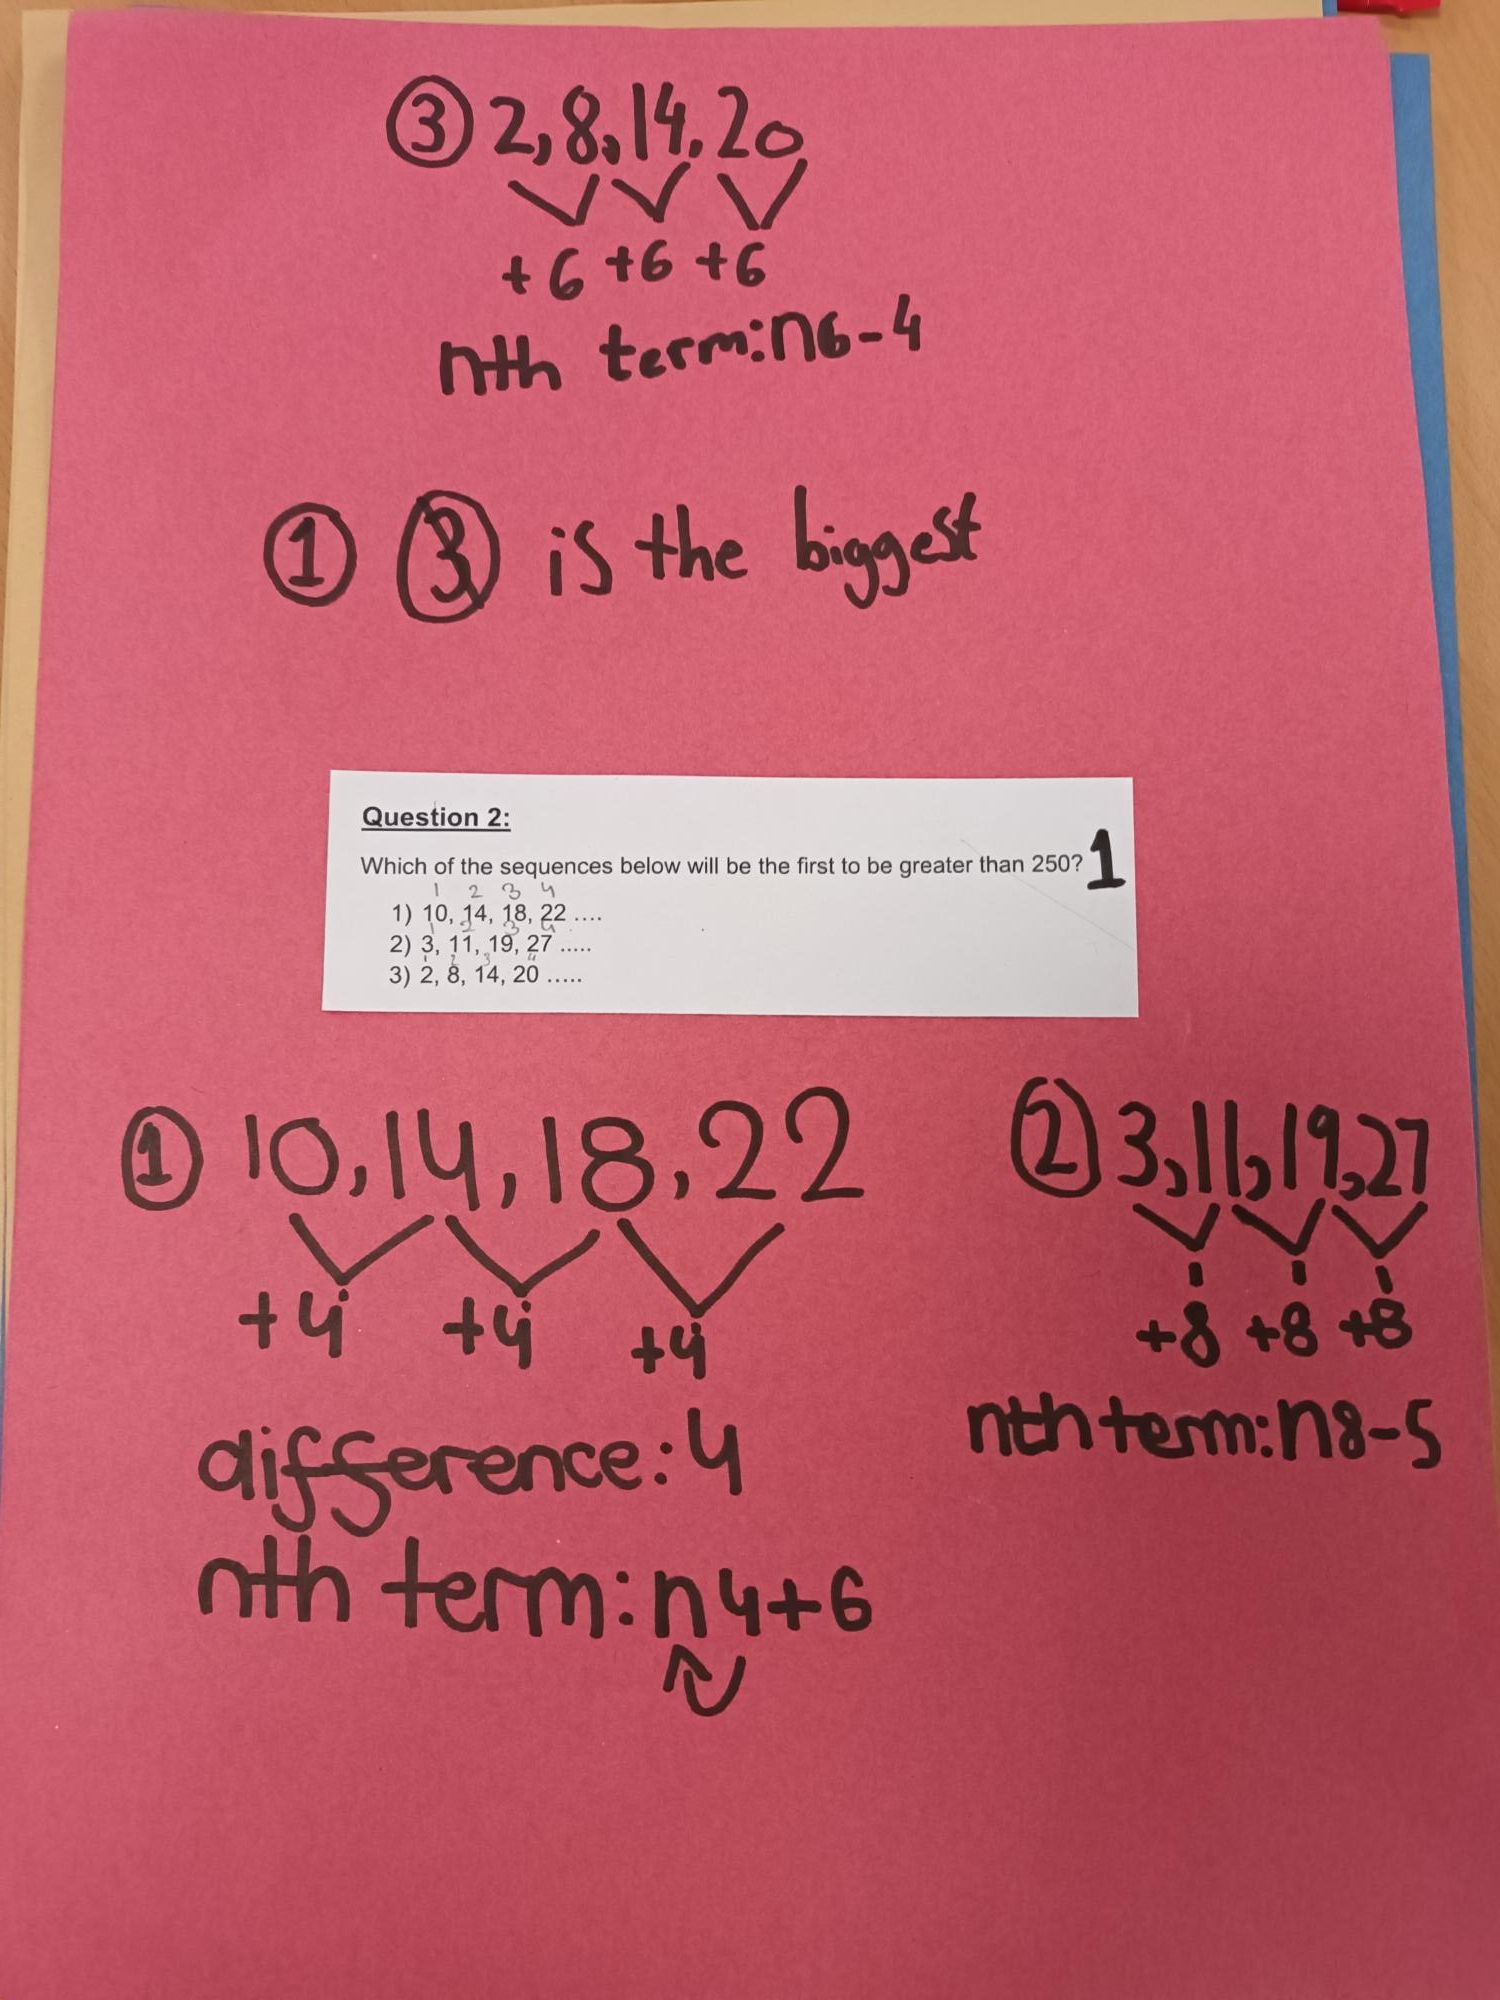 ③ 2, 8, 14, 20
+6 +6 +6
nth term: n6-4
① ③ is the biggest
Question 2:
Which of the sequences below will be the first to be greater than 250? 1
1 2 3 4
1) 10, 14, 18, 22 ....
1 2 3 4
2) 3, 11, 19, 27 .....
1 2 3 4
3) 2, 8, 14, 20 .....
① 10, 14, 18, 22
+4 +4 +4
difference: 4
nth term: n4+6
② 3, 11, 19, 27
+8 +8 +8
nth term: n8-5